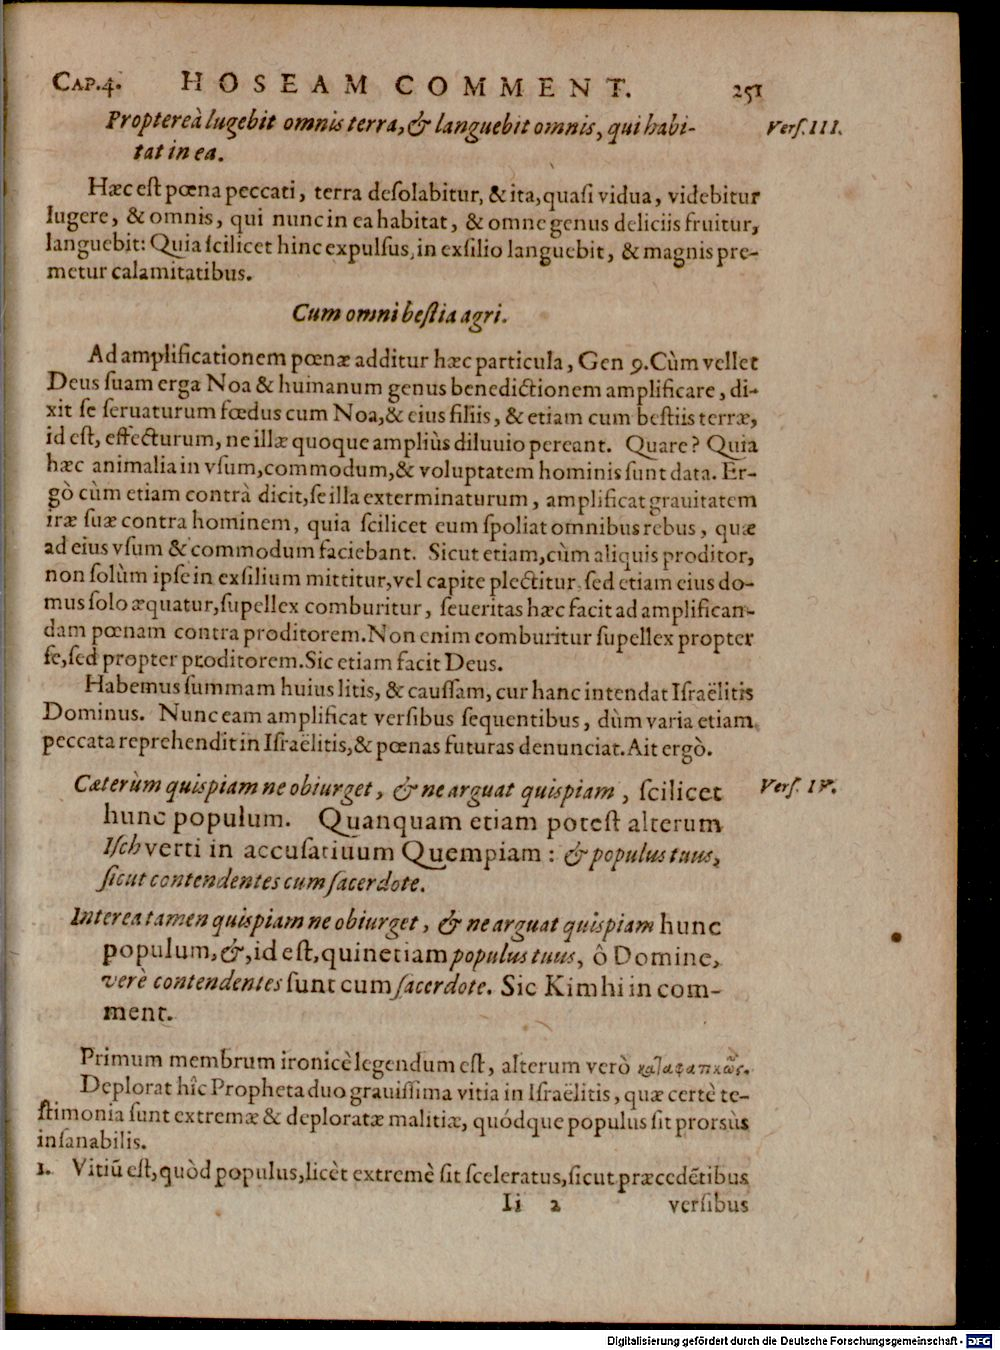 CAP.4. HOSEAM COMMENT. 251
Proptereà lugebit omnis terra, & languebit omnis, qui habi- Vers. III.
tat in ea.
Hæc est pœna peccati, terra desolabitur, & ita, quasi vidua, videbitur
lugere, & omnis, qui nunc in ea habitat, & omne genus deliciis fruitur,
languebit: Quia scilicet hinc expulsus, in exsilio languebit, & magnis pre-
metur calamitatibus.
Cum omni bestia agri.
Ad amplificationem pœnæ additur hæc particula, Gen 9. Cùm vellet
Deus suam erga Noa & humanum genus benedictionem amplificare, di-
xit se seruaturum fœdus cum Noa, & eius filiis, & etiam cum bestiis terræ,
id est, effecturum, ne illæ quoque ampliùs diluuio pereant. Quare? Quia
hæc animalia in vsum, commodum, & voluptatem hominis sunt data. Er-
gò cùm etiam contrà dicit, se illa exterminaturum, amplificat grauitatem
iræ suæ contra hominem, quia scilicet eum spoliat omnibus rebus, quæ
ad eius vsum & commodum faciebant. Sicut etiam, cùm aliquis proditor,
non solùm ipse in exsilium mittitur, vel capite plectitur, sed etiam eius do-
mus solo æquatur, supellex comburitur, seueritas hæc facit ad amplifican-
dam pœnam contra proditorem. Non enim comburitur supellex propter
se, sed propter proditorem. Sic etiam facit Deus.
Habemus summam huius litis, & caussam, cur hanc intendat Israëlitis
Dominus. Nunc eam amplificat versibus sequentibus, dùm varia etiam
peccata reprehendit in Israëlitis, & pœnas futuras denunciat. Ait ergò.
Cæterùm quispiam ne obiurget, & ne arguat quispiam, scilicet Vers. IV.
hunc populum. Quanquam etiam potest alterum
Isch verti in accusatiuum Quempiam: & populus tuus,
sicut contendentes cum sacerdote.
Interea tamen quispiam ne obiurget, & ne arguat quispiam hunc
populum, &, id est, quinetiam populus tuus, ô Domine,
verè contendentes sunt cum sacerdote. Sic Kimhi in com-
ment.
Primum membrum ironicè legendum est, alterum verò καταφατικῶς.
Deplorat hîc Propheta duo grauissima vitia in Israëlitis, quæ certè te-
stimonia sunt extremæ & deploratæ malitiæ, quódque populus sit prorsùs
insanabilis.
1. Vitiũ est, quòd populus, licèt extremè sit sceleratus, sicut præcedẽtibus
Ii 2 versibus
Digitalisierung gefördert durch die Deutsche Forschungsgemeinschaft - DFG